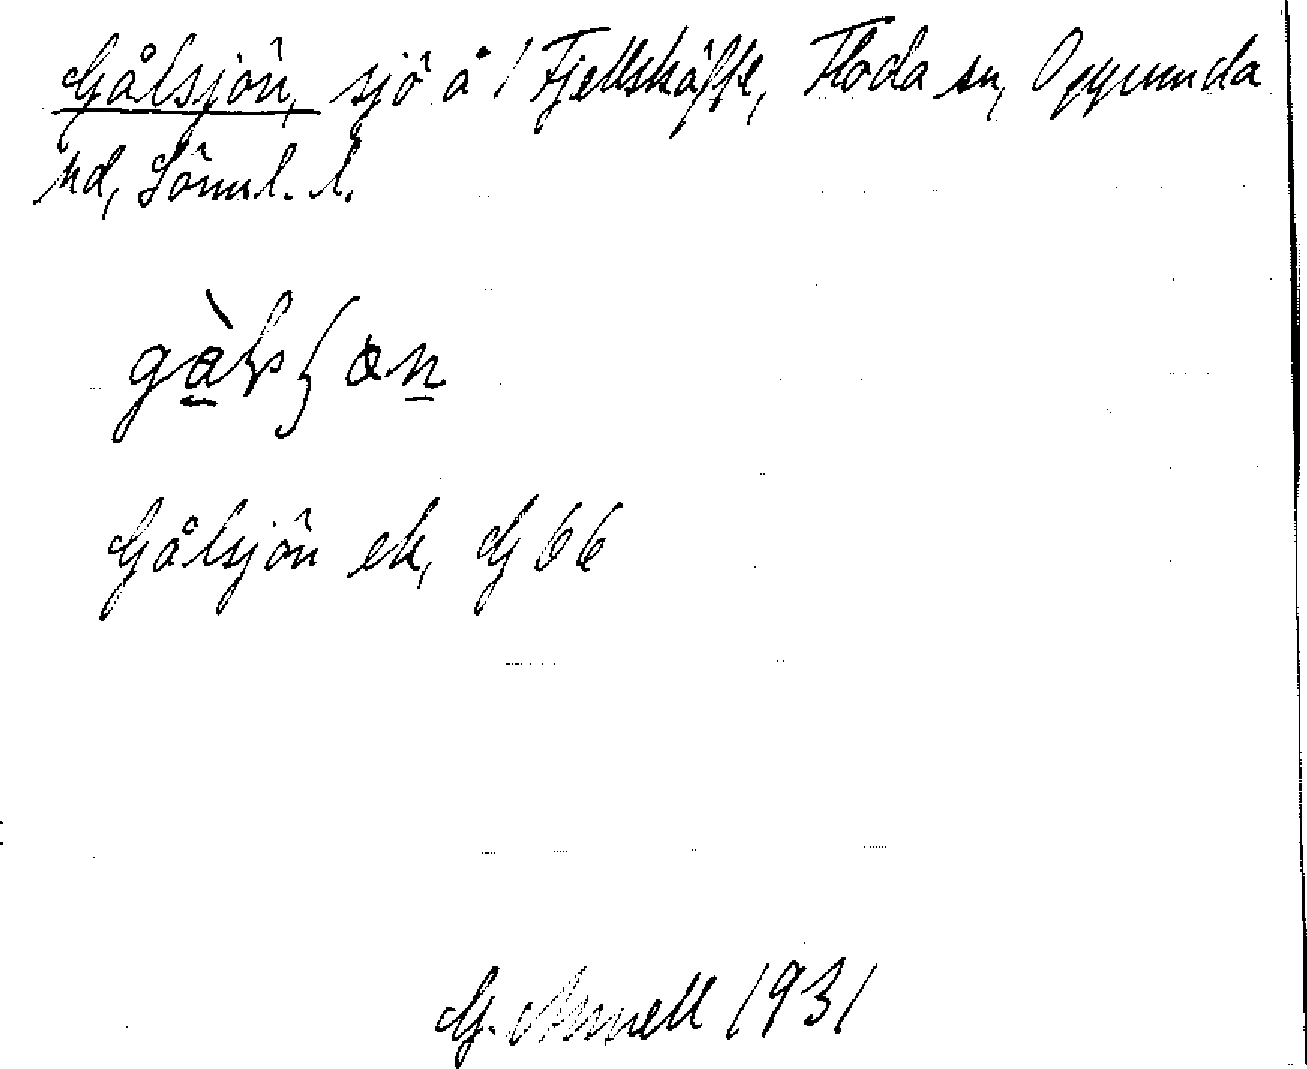 Gålsjön, sjö å 1 Fjellskäfte, Floda sn, Oppunda
hd, Söml. l.
gàlsʃɷn
Gålsjön ek, G 66
G. Arnell 1931